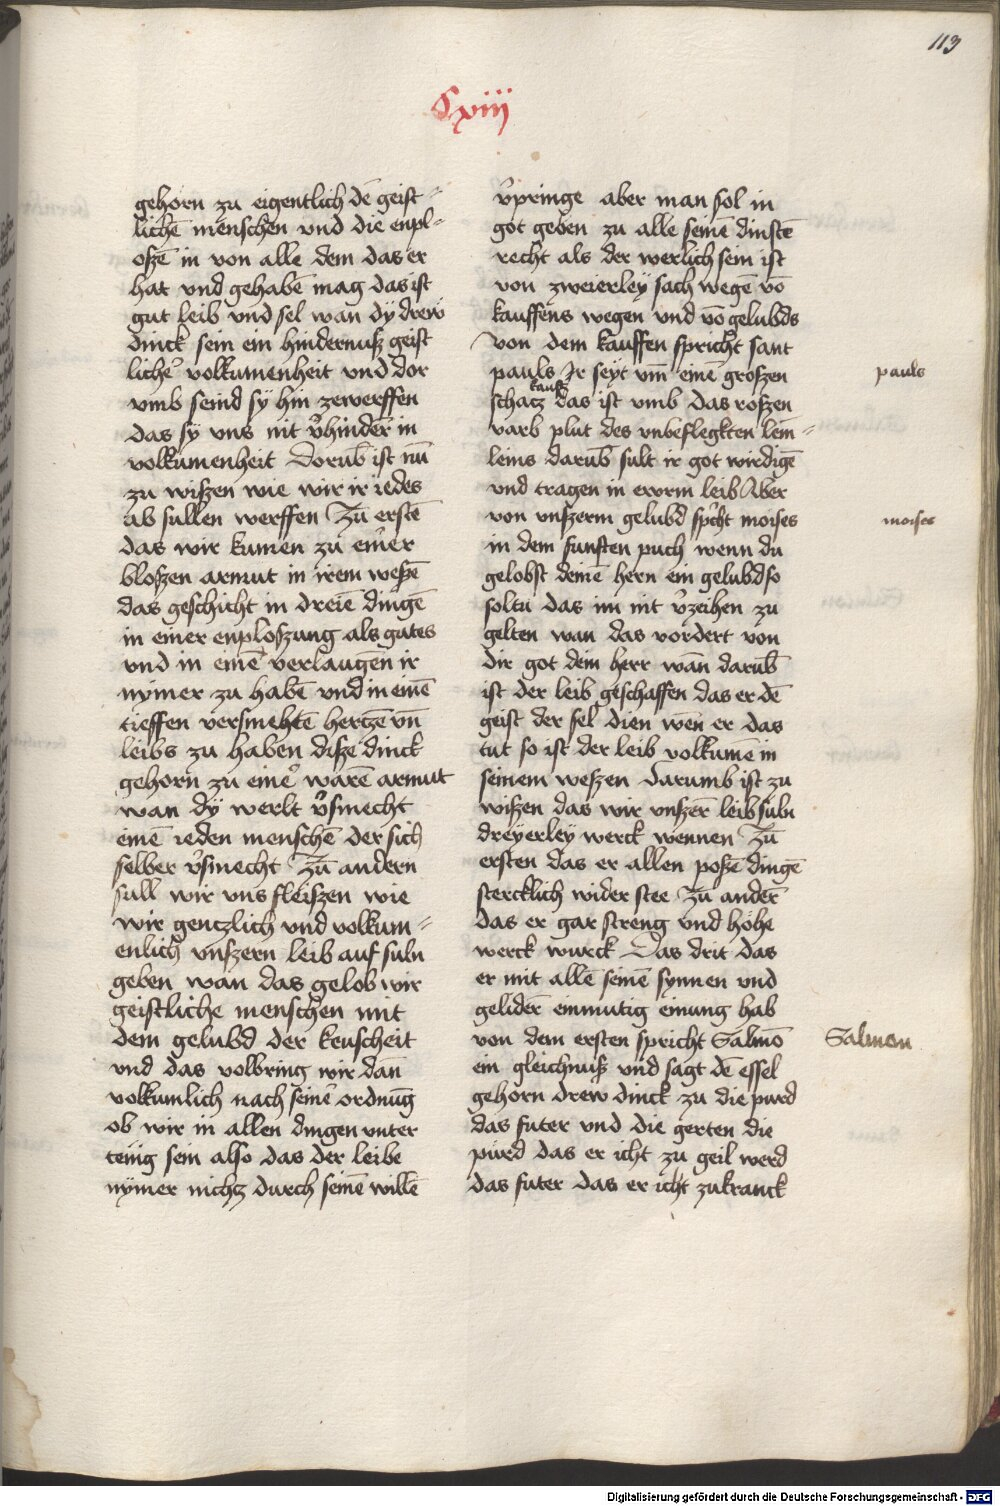 113
Cxiij
gehorn zu eigentlich dē geist-
lichē menschen vnd die enpl-
oszē in von alle dem das er
hat vnd gehabē mag das ist
gut leib vnd sel wan dÿ drew
dinck sein ein hindernusz geist
lich̕ volkumenheit vnd dor
vmb seind sy hin zewerffen
das sÿ vns nit v̕hindēr in
volkumenheit Dorūb ist nū
zu wiszen wie wir ir iedes
ab sullen werffen Zu erstē
das wir kumen zu einer
bloszen armut in irem weszē
das geschicht in dreiē dingē
in einer enploszung als gutes
vnd in einē verlaugēn ir
nÿmer zu habē vnd in einē
tieffen versmehtē hertzē vn̄
leibs zu haben disze dinck
gehorn zu eine̕ warē armut
wan dÿ werlt v̕smecht
einē ieden menschē der sich
selber v̕smecht Zū andern
sull wir vns fleiszen wie
wir gentzlich vnd volkum-
enlich vnszern leib auf suln
geben wan das gelob wir
geistliche menschen mit
dem gelubd der keuscheit
vnd das volbring wir dan̄
volkumlich nach seine̕ ordnūg
ob wir in allen dingen vnter
tenig sein also das der leibe
nÿmer nichtz durch seinē willē
v̕pringe aber man sol in
got geben zu alle seinē dinstē
recht als der werlich sein ist
von zweierleÿ sach wegē vō
kauffens wegen vnd vō gelubds
von dem kauffen spricht sant
pauls Ir seyt vm̄ einē groszen
pauls
schacz kauft das ist vmb das roszen
varb plut des vnbeflegkten lem-
leins darūb sult ir got wirdigē
vnd tragen in ewrm leib Aber
von vnszerm gelubd sp̕cht moises
moises
in dem funften puch wenn du
gelobst deinē hern ein gelubd so
soltu das im nit v̕zeihen zu
gelten wan das vordert von
dir got dein herr wān darūb
ist der leib geschaffen das er dē
geist der sel dien wen er das
tut so ist der leib volkume in
seinem weszen Darumb ist zu
wiszen das wir vnszēr leib suln
dreÿerleÿ werck wennen Zū
ersten das er allen poszē dingē
stercklich wider stee Zū andēr
das er gar streng vnd hohe
werck wurck Das drit das
er mit allē seinē synnen vnd
gelidēr einmutig einung hab
von dem ersten spricht Salmō
Salmon
ein gleichnusz vnd sagt dē essel
gehorn drew dinck zu die purd
das futer vnd die gerten die
purd das er icht zu geil werd
das futer das er icht zu kranck
Digitalisierung gefördert durch die Deutsche Forschungsgemeinschaft - DFG